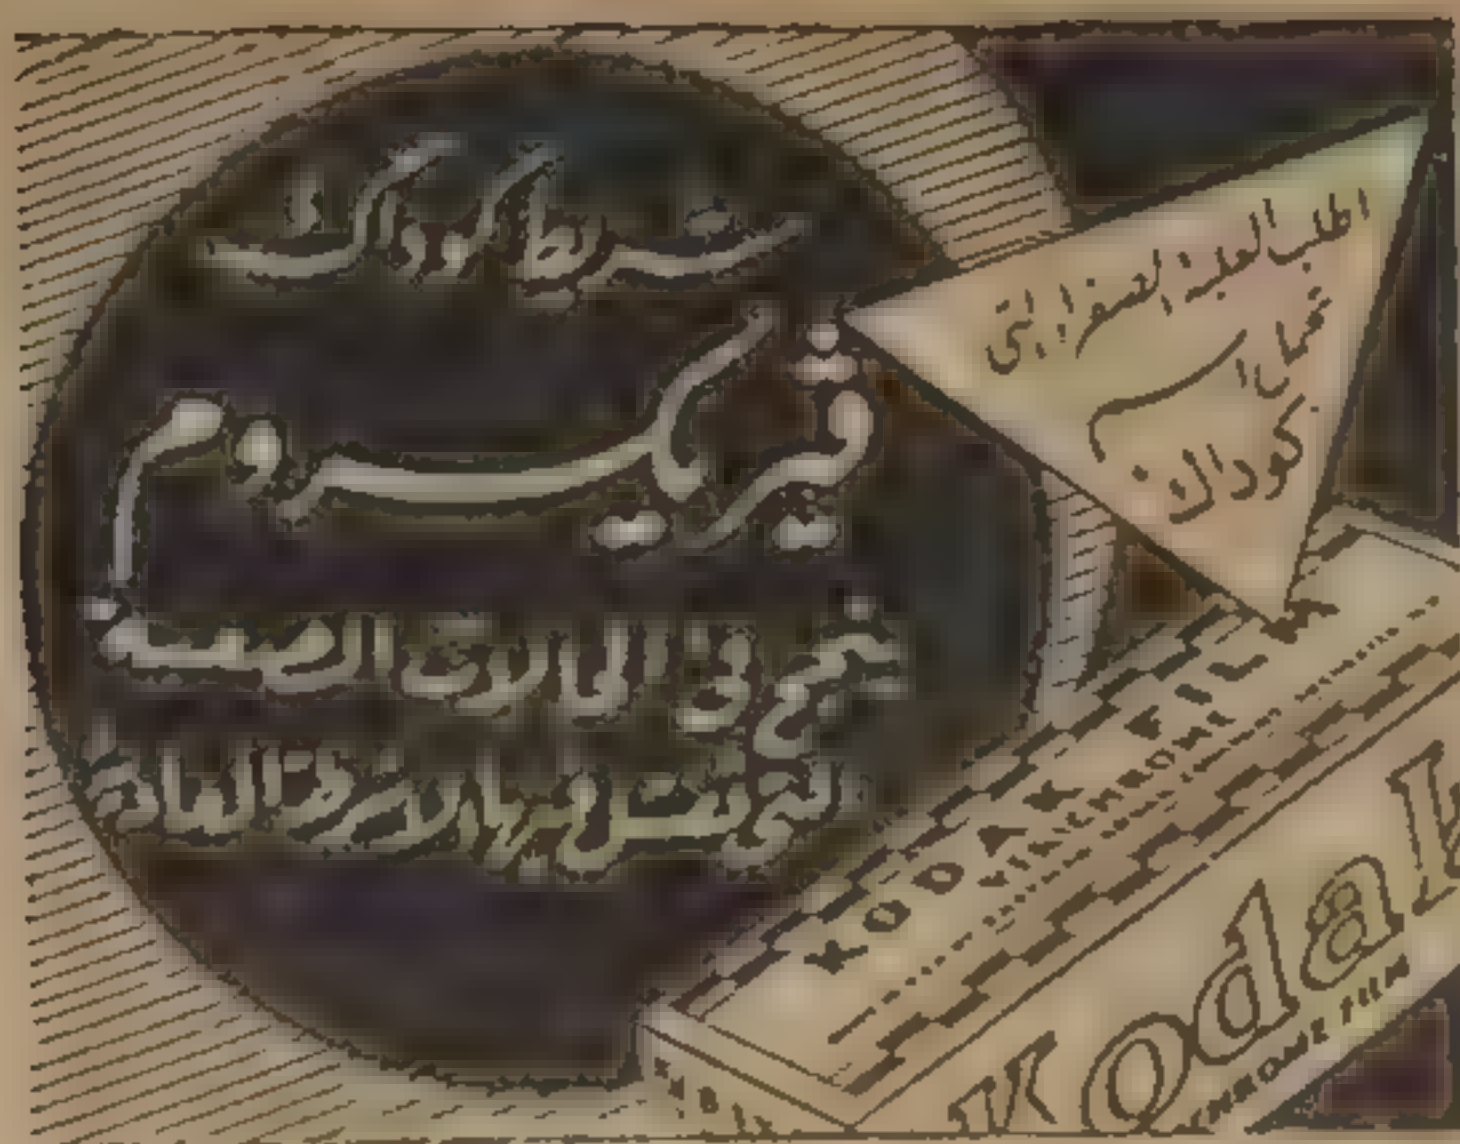 شريط كوداك
فيريكروم
ينجح في الحالات الصعبة
التي تفشل فيها الشرائط العادية
اطلب العلبة الصفراء التي
تحمل اسم
كوداك
KODAK FILM
VERICHROME
Kodak
CHROME FILM